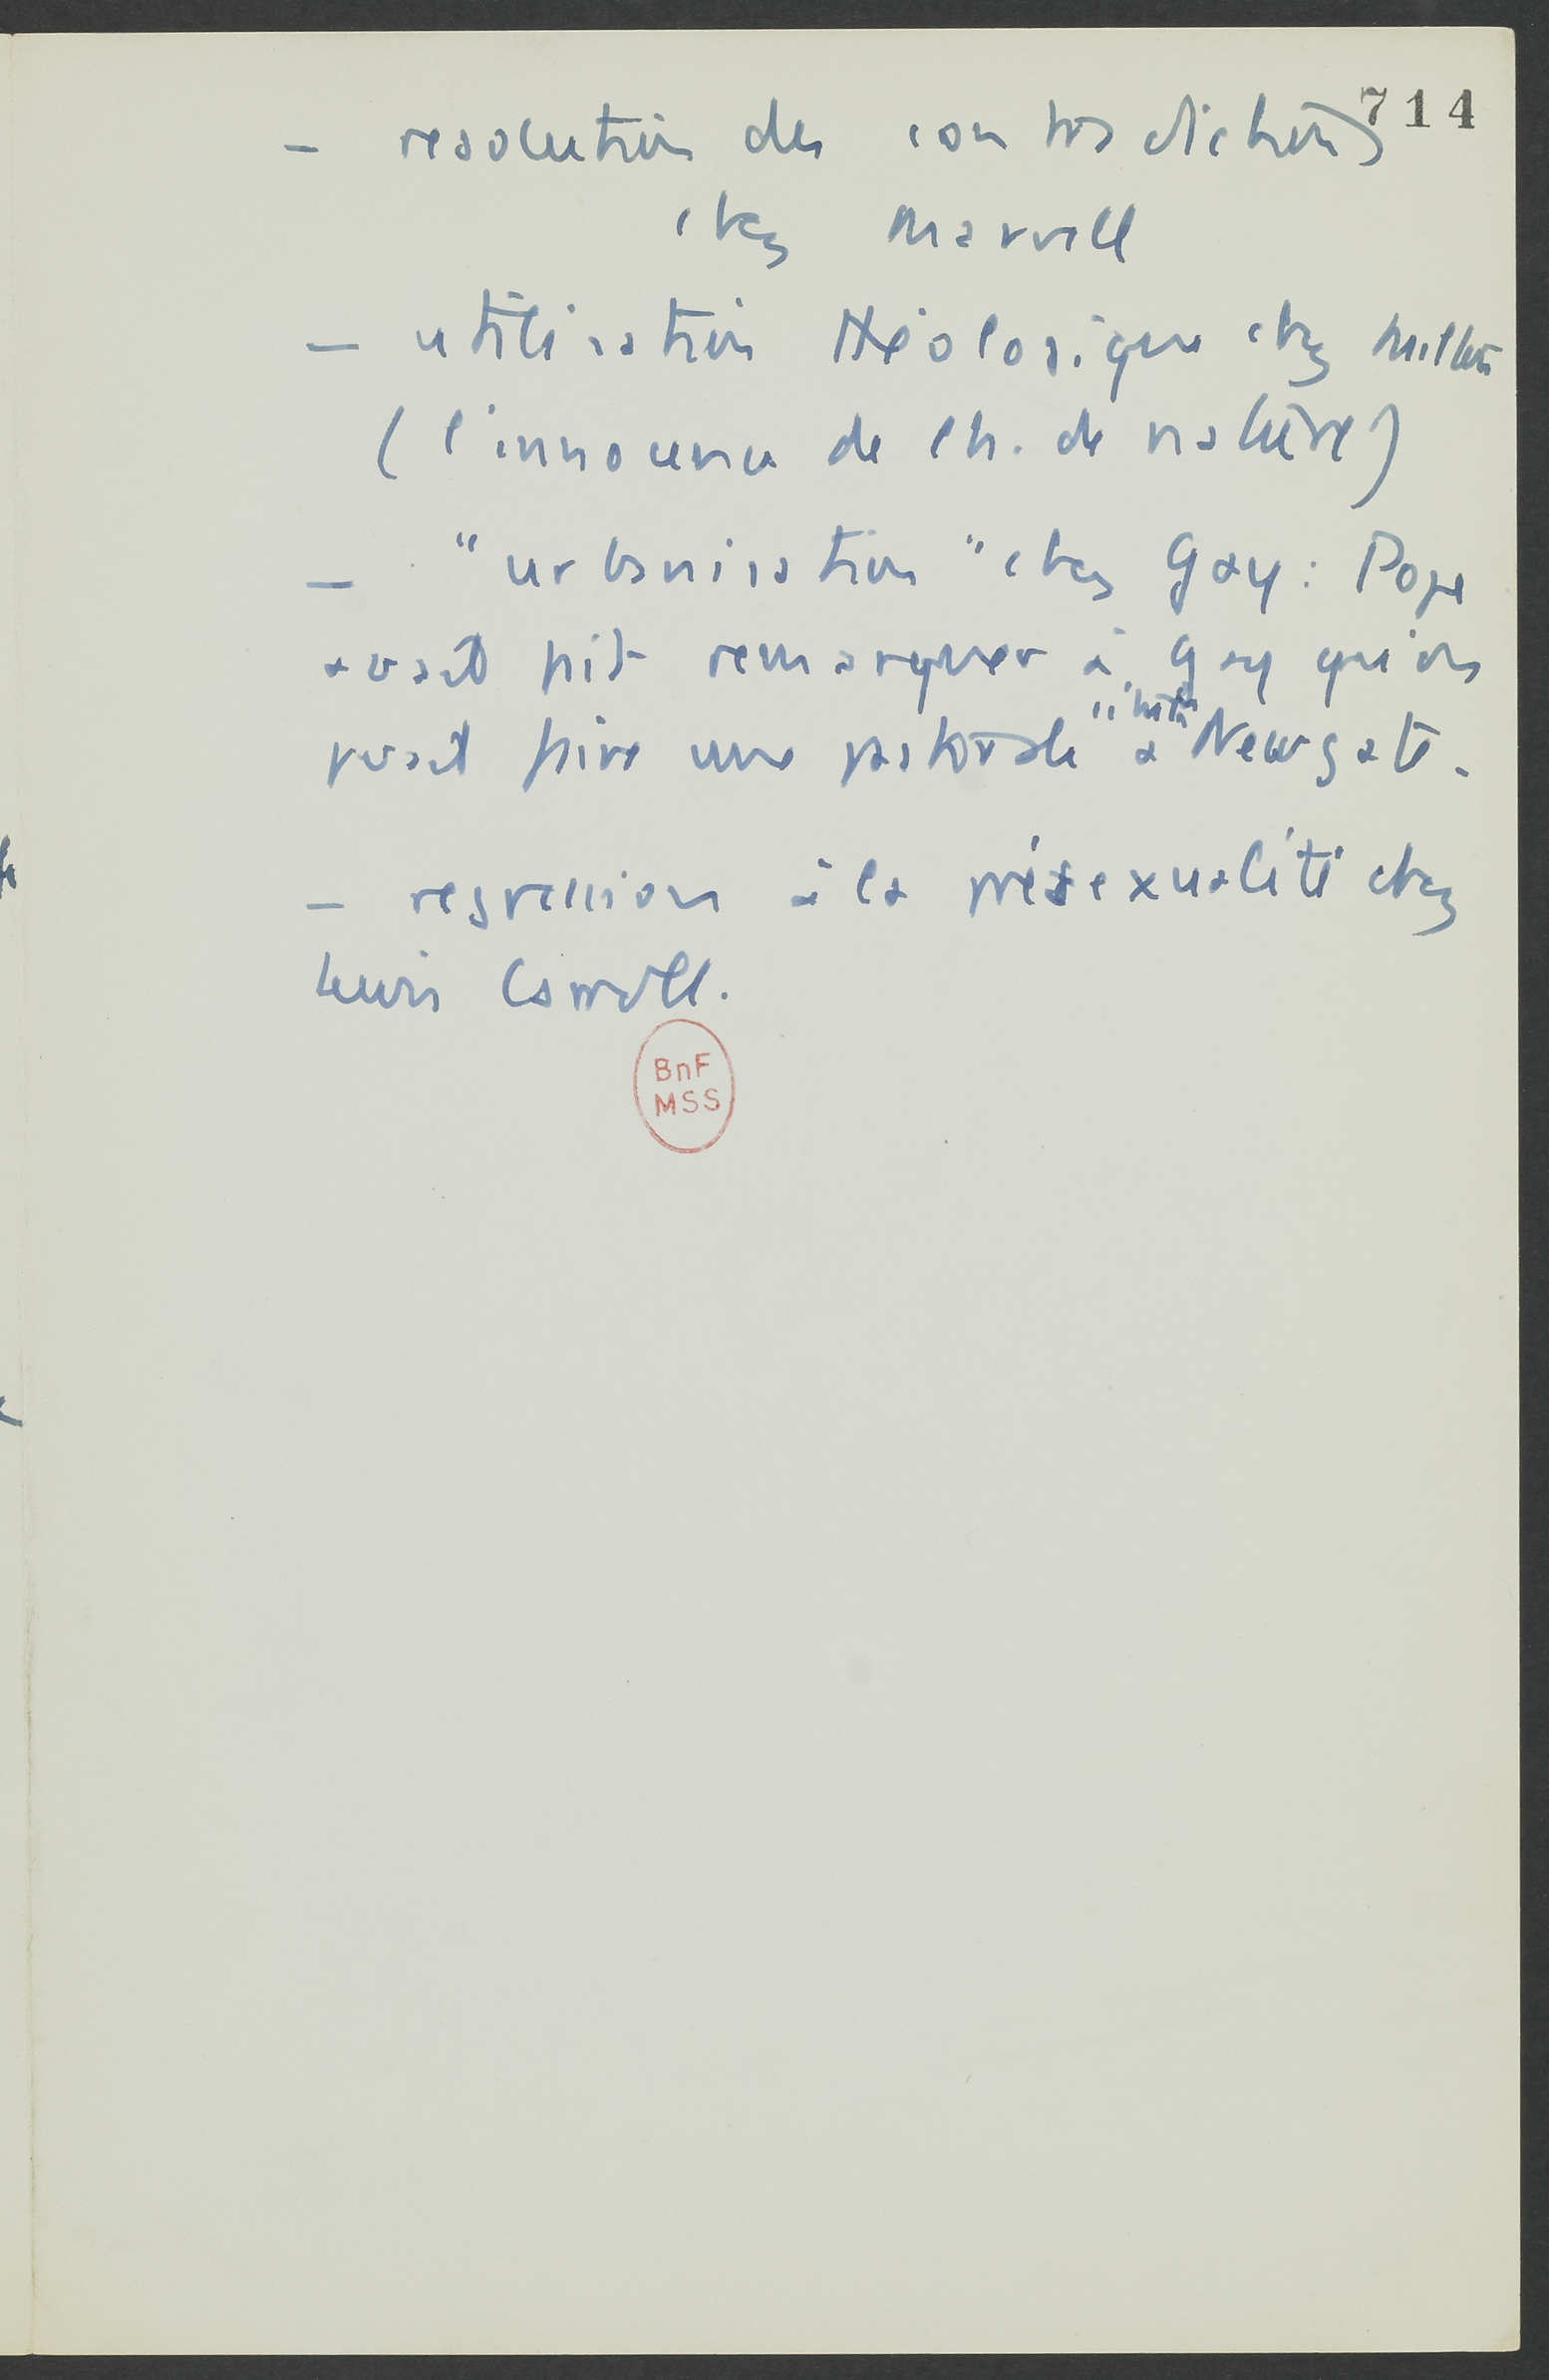 714
- resolution des contradictions
chez Marvell
- utilisation théologique chez Milton
(l'innocence de l'h. de nature)
- "urbanisation" chez Gay: Pope
avait fait remarquer à Gay qu'on
pvait faire une pastorale "située à Newgate.
- regression à la présexualité chez
Lewis Carroll.
BnF
MSS